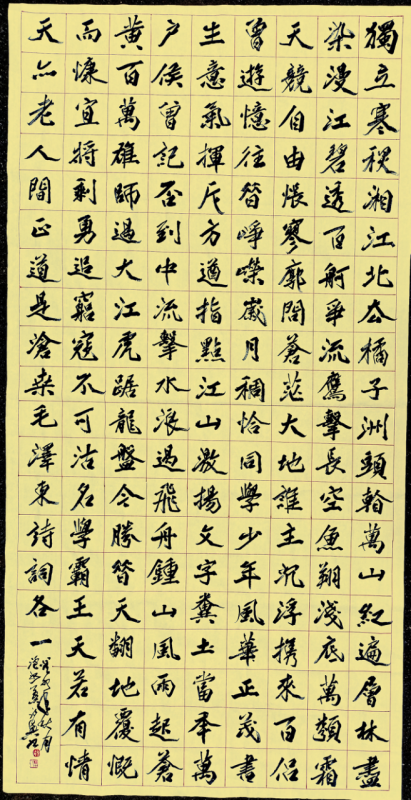 獨立寒秋湘江北去橘子洲頭看萬山紅遍層林盡
染漫江碧透百舸爭流鷹擊長空魚翔淺底萬類霜
天競自由悵寥廓問蒼茫大地誰主沉浮攜來百侶
曾遊憶往昔崢嶸歲月稠恰同學少年風華正茂書
生意氣揮斥方遒指點江山激揚文字糞土當年萬
戶侯曾記否到中流擊水浪遏飛舟鍾山風雨起蒼
黃百萬雄師過大江虎踞龍盤今勝昔天翻地覆慨
而慷宜將剩勇追窮寇不可沽名學霸王天若有情
天亦老人間正道是滄桑毛澤東詩詞各一